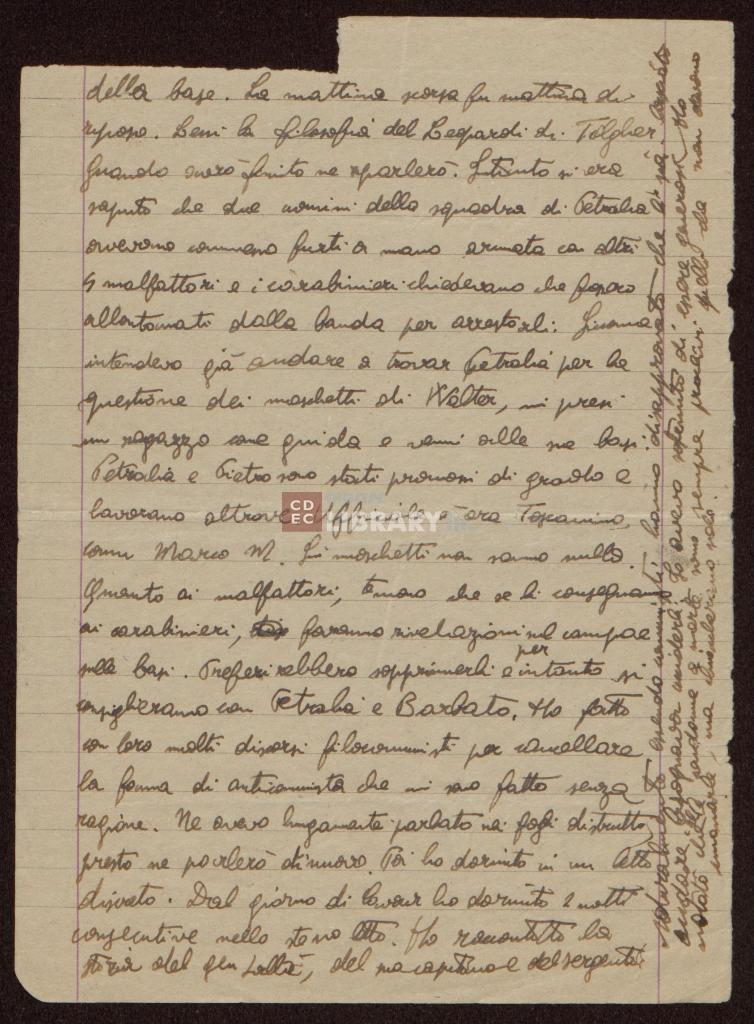 della base. La mattina scorsa fu mattina di
riposo. Lessi la filosofia del Leopardi di Tilgher.
Quando avrò finito ne riparlerò. Intanto si era
saputo che due uomini della squadra di Petralia
avevano commesso furti a mano armata con altri
4 malfattori e i carabinieri chiedevano che fossero
allontanati dalla banda per arrestarli. Siccome
intendevo già andare a trovar Petralia per la
questione dei moschetti di Walter, mi presi
un ragazzo come guida e venni alle sue basi.
Petralia e Pietro sono stati promossi di grado e
lavorano altrove. Ufficiale è ora Toscanino,
comm Marco M. Sui moschetti non sanno nulla.
Quanto ai malfattori, temono che se li consegnano
ai carabinieri, faranno rivelazioni sul campo e
sulle basi. Preferirebbero sopprimerli e per intanto si
consiglieranno con Petralia e Barbato. Ho fatto
con loro molti discorsi filocomunisti per cancellare
la fama di anticomunista che mi sono fatto senza
ragione. Ne avevo lungamente parlato nei fogli distrutti,
presto ne parlerò di nuovo. Poi ho dormito in un letto
discreto. Dal giorno di Cavour ho dormito 2 notti
consecutive nello stesso letto. Ho raccontato la
storia del gen, del suo capitano e del sergente
Naturalmente essendo comunisti, hanno disapprovato che
andare: bisognava ucciderli. Io avevo ritenuto di essere generosi. Ho
notato che la sono sempre proclivi quelli che non devono
ma
CDEC
DIGITAL
LIBRARY